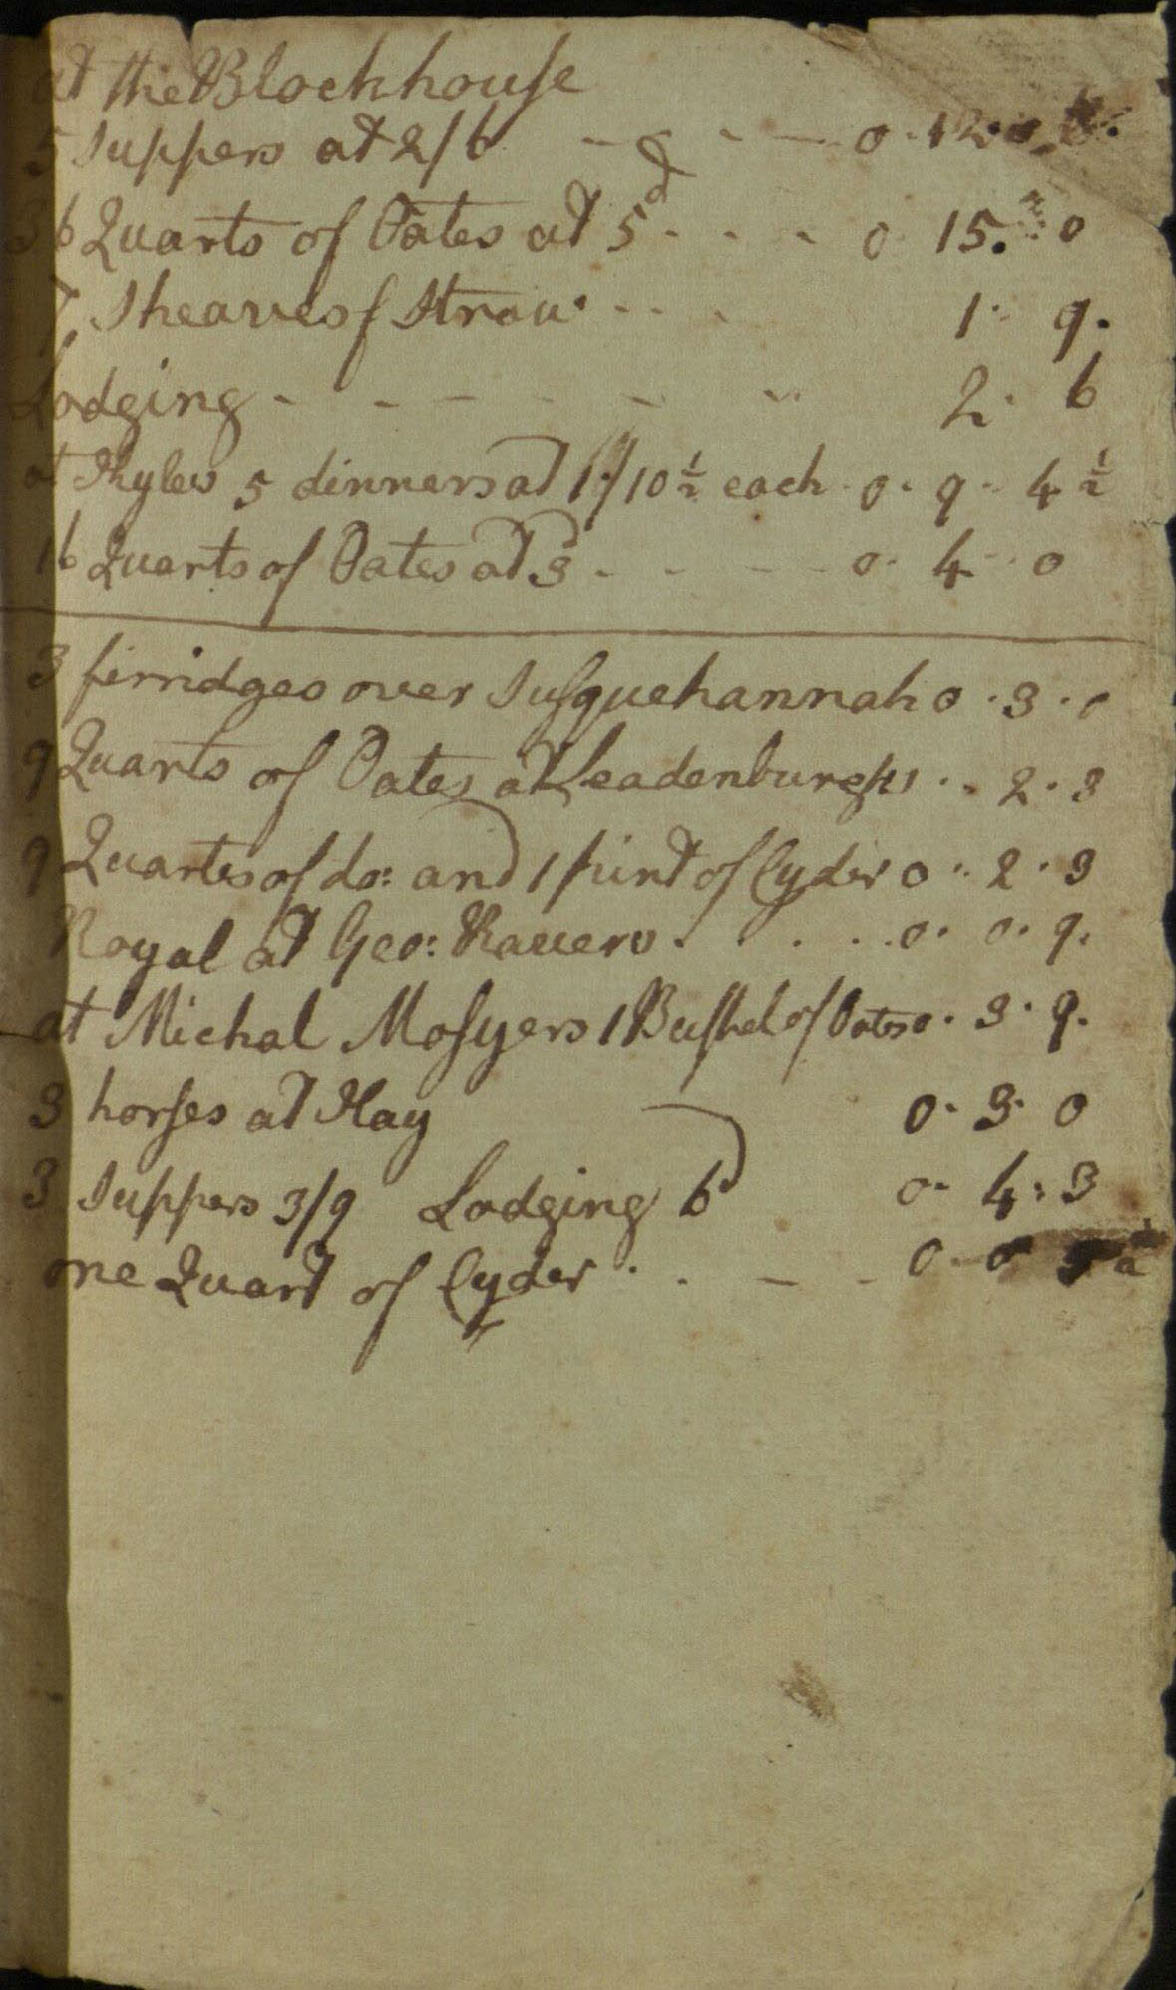 at the Blockhouse
5 Suppers at 2/6 - - - 0 . 12 .
36 Quarts of Oates at 5d . . . 0 15. 0
7 Sheaves of Straw . . . 1 . 9.
Lodging - - - - - 2 . 6
at 5 dinners at 1/10 ½ each . 0 . 9 . 4 ½
16 Quarts of Oates at 3d - - - - 0 . 4 . 0
3 firridges over Susquehannah 0 . 3 . 0
9 Quarts of Oates at Leadenburghs . . 2 . 3
9 Quartes of do: and 1 pint of Cyder 0 . 2 . 3
Royal at Geo: . . . . 0 . 0 . 9.
at Michal Mosyers 1 Bushel of Oates 0 . 3 . 9.
3 horses at Hay 0 . 3 . 0
3 Suppers 3/9 Lodging 6d 0 . 4 . 3
one Quart of Cyder . . - - 0 . 0